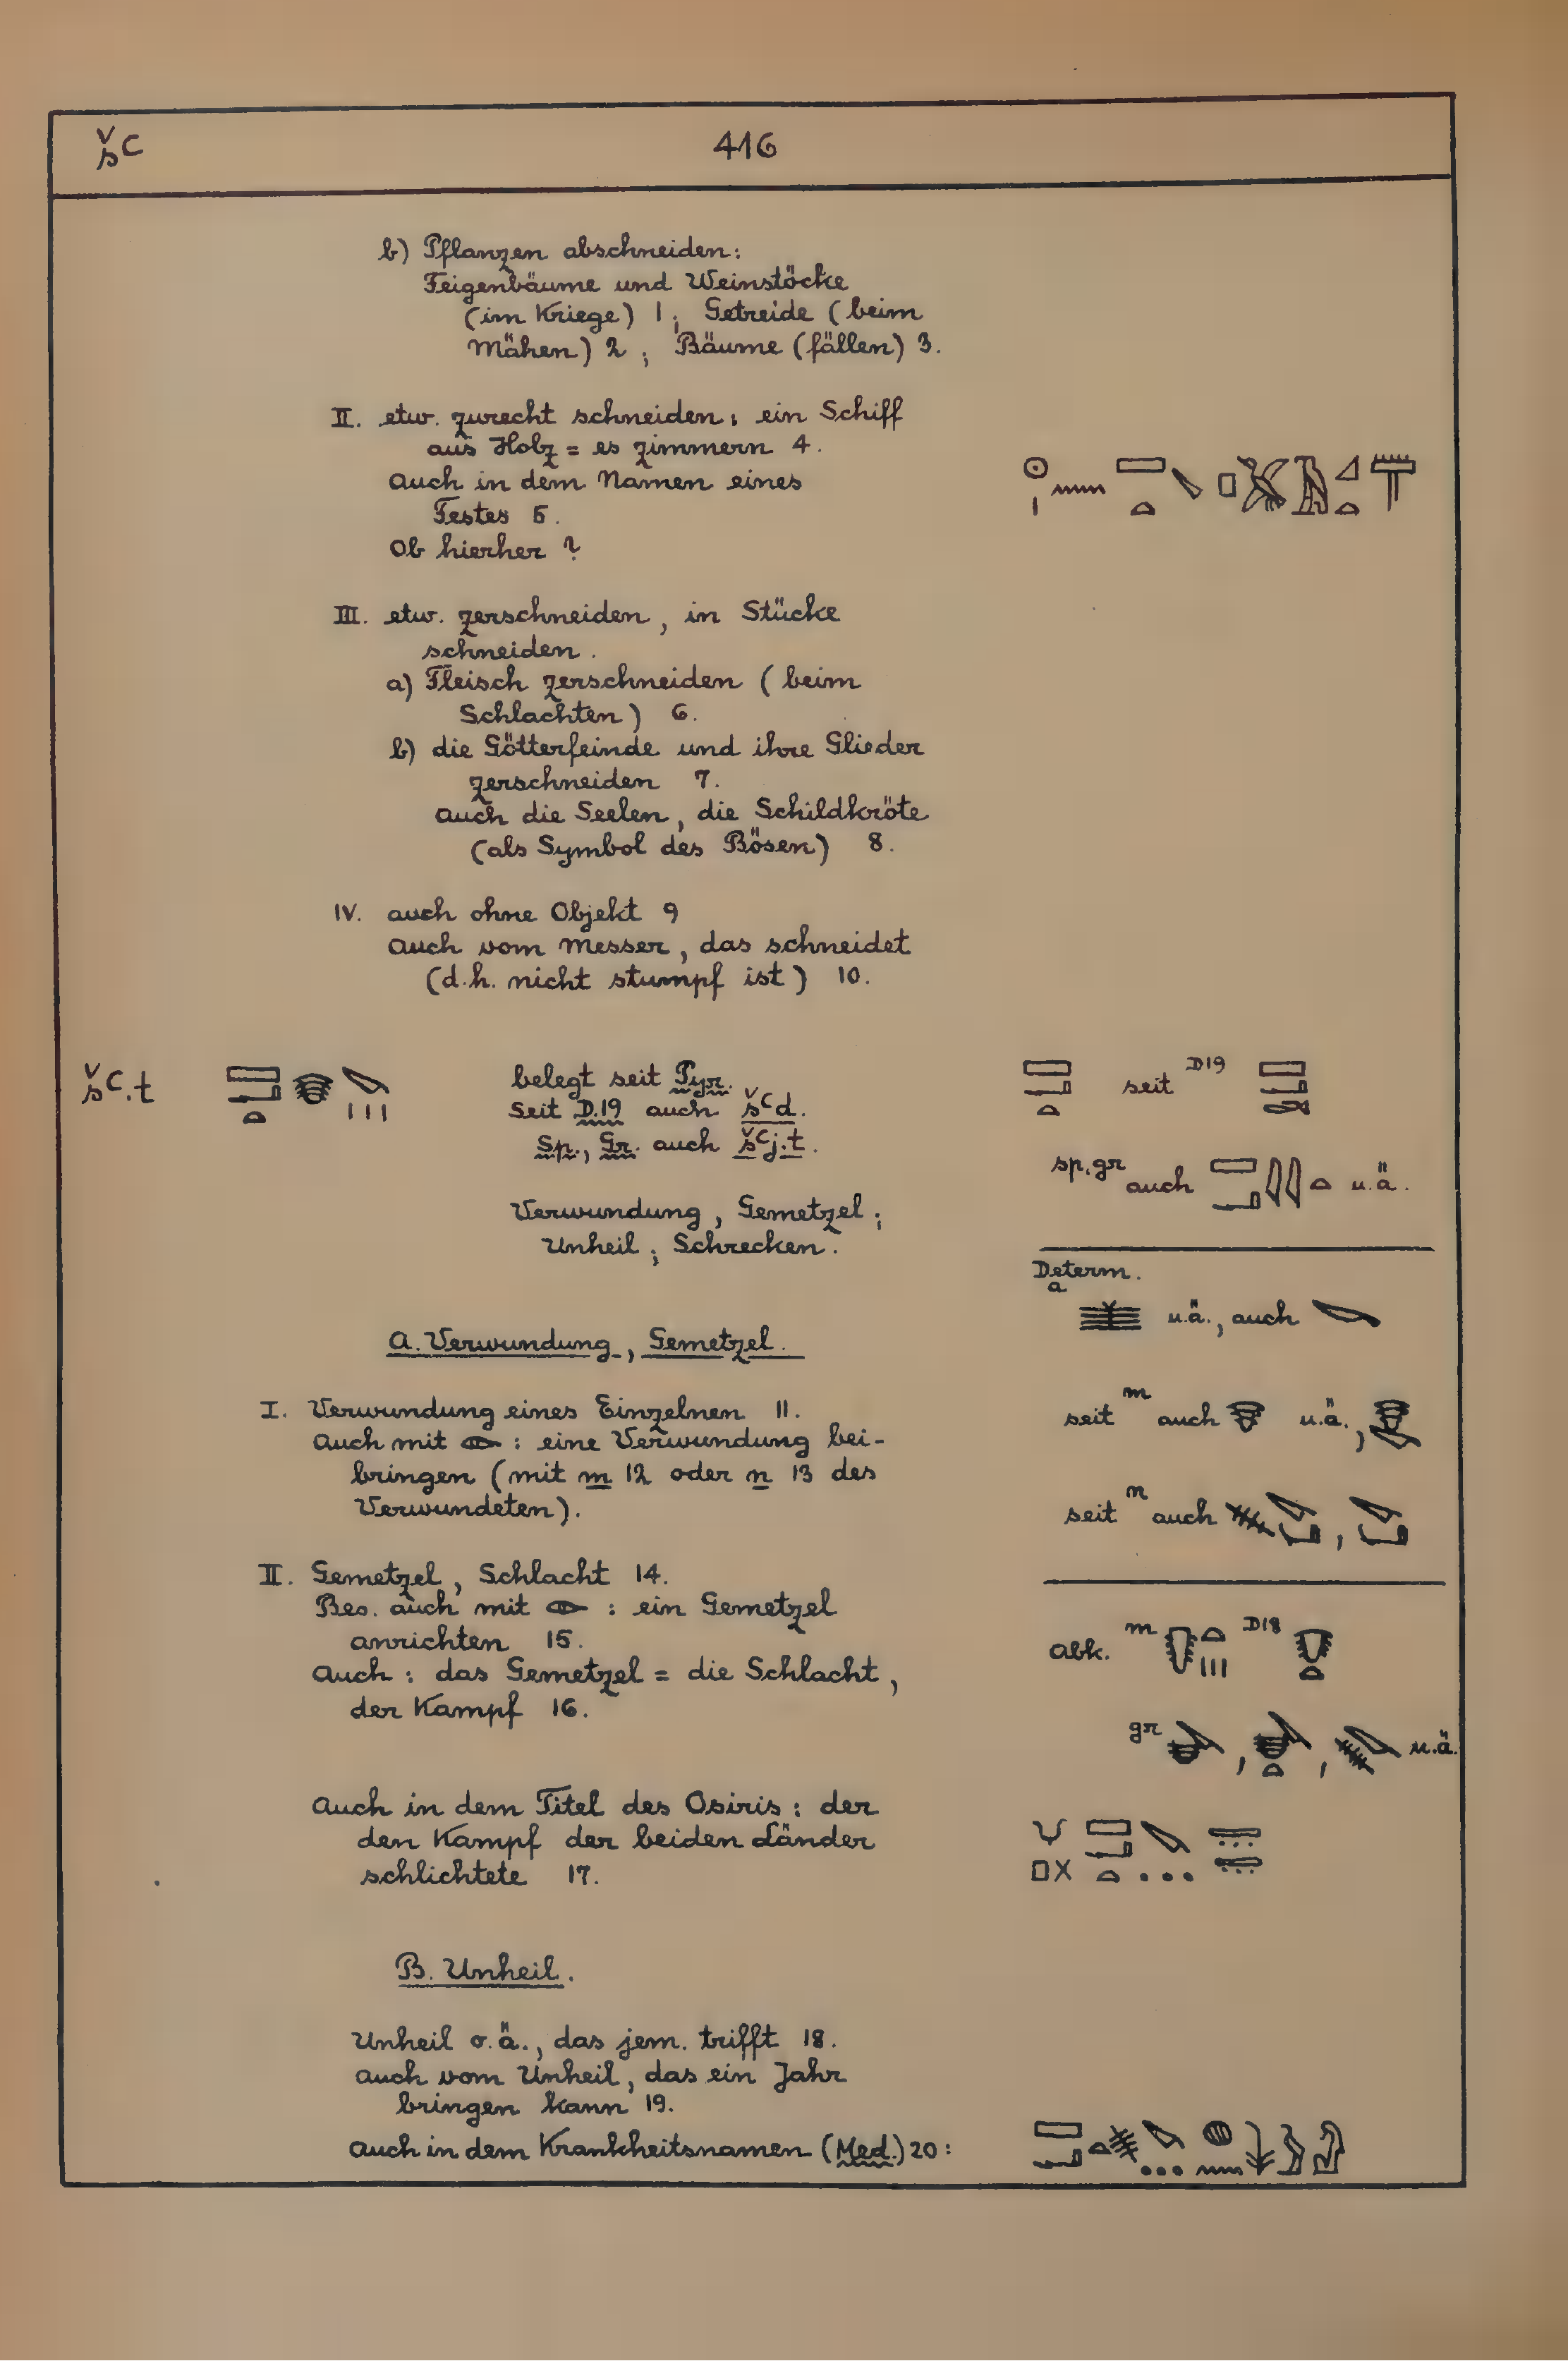 šꜥ 416
b) Pflanzen abschneiden:
Feigenbäume und Weinstöcke
(im Kriege) 1; Getreide (beim
Mähen) 2; Bäume (fällen) 3.
II. etw. zurecht schneiden; ein Schiff
aus Holz = es zimmern 4.
Auch in dem Namen eines
Festes 5.
Ob hierher?
III. etw. zerschneiden, in Stücke
schneiden.
a) Fleisch zerschneiden (beim
Schlachten) 6.
b) die Götterfeinde und ihre Glieder
zerschneiden 7.
Auch die Seelen, die Schildkröte
(als Symbol des Bösen) 8.
IV. auch ohne Objekt 9
Auch vom Messer, das schneidet
(d.h. nicht stumpf ist) 10.
šꜥ.t
belegt seit Pyr.
Seit D.19 auch šꜥd.
Sp., Gr. auch šꜥj.t.
Verwundung, Gemetzel;
Unheil; Schrecken.
seit D19
sp, gr auch u.ä.
Determ.
a u.ä., auch
seit m auch u.ä.,
seit n auch ,
abk. m D18
gr , , u.ä.
A. Verwundung, Gemetzel.
I. Verwundung eines Einzelnen 11.
Auch mit : eine Verwundung bei-
bringen (mit m 12 oder n 13 des
Verwundeten).
II. Gemetzel, Schlacht 14.
Bes. auch mit : ein Gemetzel
anrichten 15.
Auch: das Gemetzel = die Schlacht,
der Kampf 16.
Auch in dem Titel des Osiris: der
den Kampf der beiden Länder
schlichtete 17.
B. Unheil.
Unheil o.ä., das jem. trifft 18.
Auch vom Unheil, das ein Jahr
bringen kann 19.
Auch in dem Krankheitsnamen (Med.) 20: